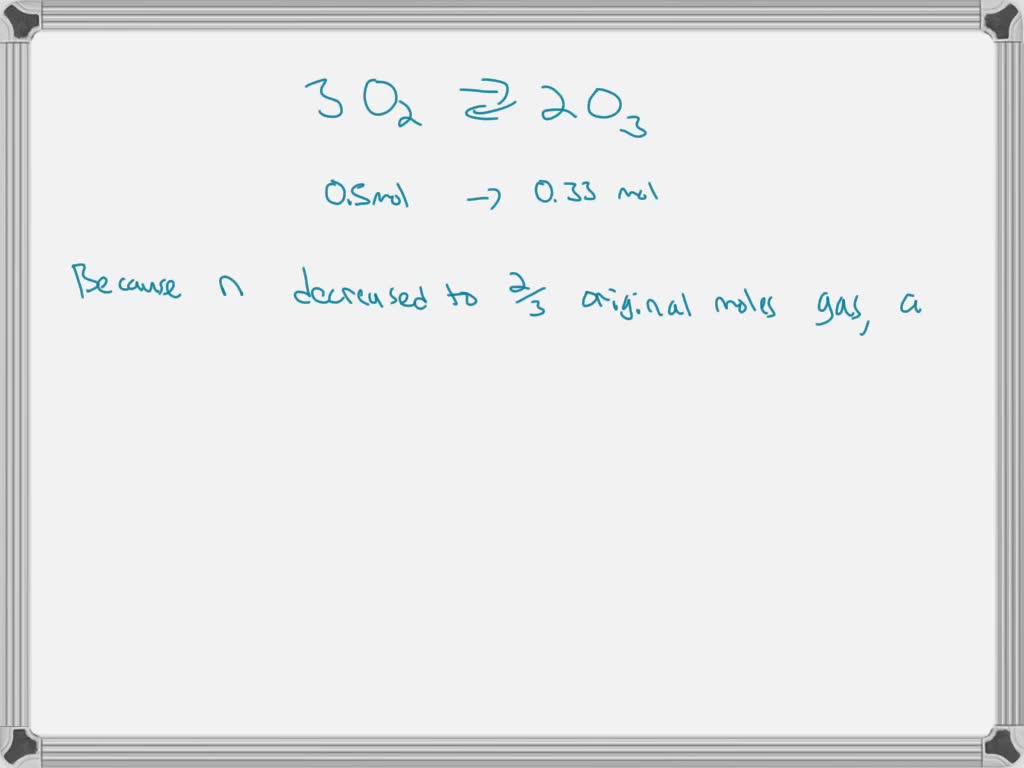 3O₂ ⇄ 2O₃
0.5mol → 0.33 mol
Because n decreased to 2/3 original moles gas, a